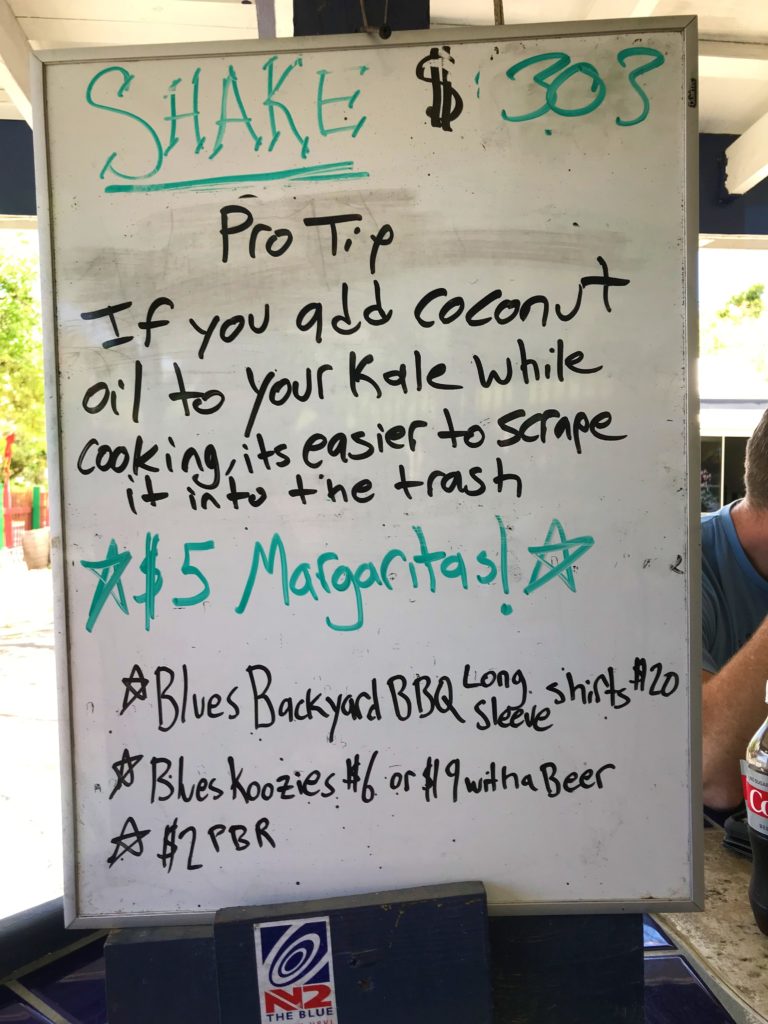 SHAKE $ 303
Pro Tip
If you add coconut
oil to your Kale while
cooking, its easier to scrape
it into the trash
$5 Margaritas!
Blues Backyard BBQ Long Sleeve shirts $20
Blues Koozies $6 or $19 with a Beer
$2 PBR
N2
THE BLUE
Co